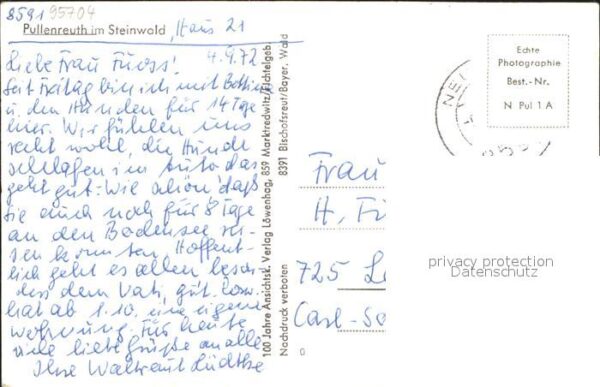 8591 95704
Pullenreuth im Steinwald, Haus 21
4.9.72
Liebe Frau Fuchs!
Seit Freitag bin ich mit
u. den Hunden für 14 Tage
hier. Wir fühlen uns
recht wohl, die Hunde
schlafen im Auto das
geht gut. Wie schön daß
Sie auch noch für 8 Tage
an den Bodensee rei-
sen konnten. Hoffent-
lich geht es allen beson
ders dem Vati, gut.
hat ab 1.10. eine eigene
Wohnung. Für heute
viele liebe Grüße an alle
Ihre Waltraut Lüdtke
100 Jahre Ansichtsk. Verlag Löwenhag, 859 Marktredwitz/Fichtelgeb
8391 Bischofsreut/Bayer. Wald
Nachdruck verboten
Echte
Photographie
Best.-Nr.
N Pul 1 A
Frau
H. F
725 Le
Carl-Sc
privacy protection
Datenschutz